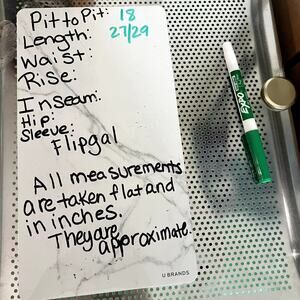 Pit to Pit: 18
Length: 27/29
Waist:
Rise:
Inseam:
Hip:
Sleeve:
Flipgal
All measurements
are taken flat and
in inches.
They are approximate
U BRANDS
EXPO